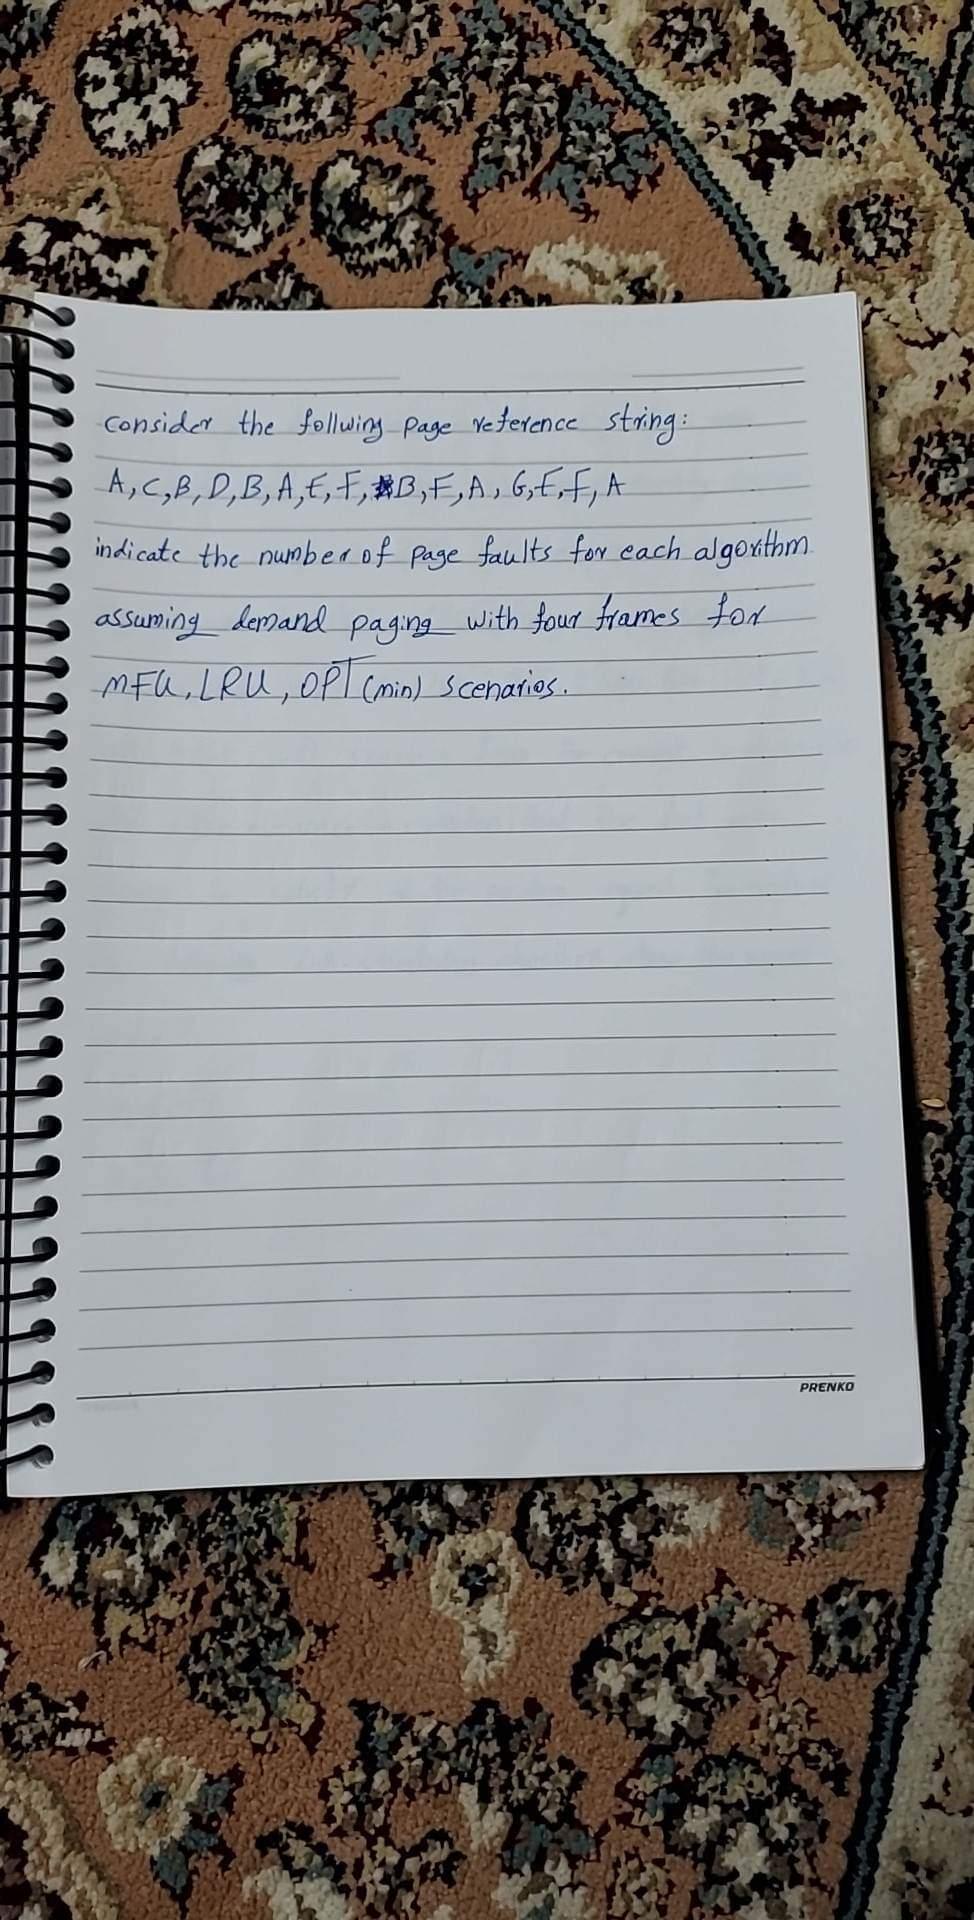 consider the follwing page reference string:
A, C, B, D, B, A, E, F, B, F, A, G, E, F, A
indicate the number of page faults for each algorithm
assuming demand paging with four frames for
MFU, LRU, OPT (min) scenarios.
PRENKO